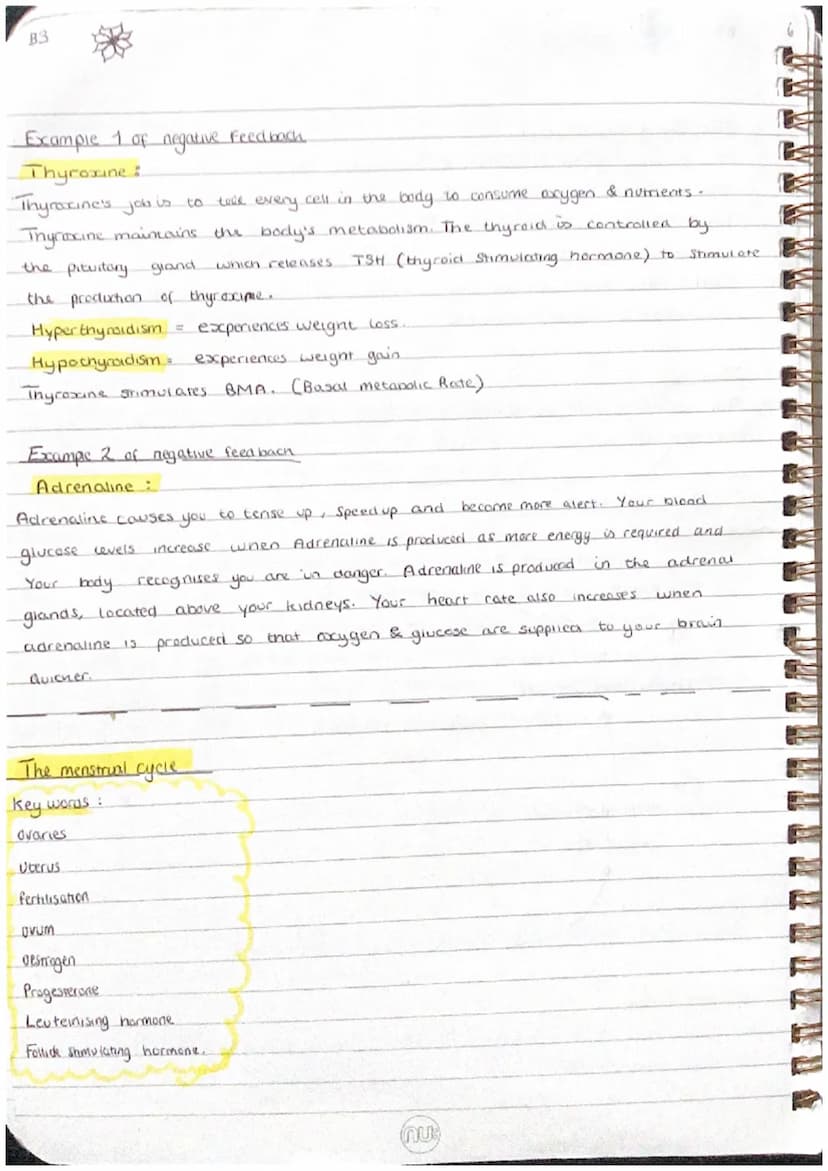 B3
6
Example 1 of negative feedback
Thyroxine :
Thyroxine's job is to tell every cell in the body to consume oxygen & nutrients.
Thyroxine maintains the body's metabolism. The thyroid is controlled by
the pituitary gland which releases TSH (thyroid stimulating hormone) to stimulate
the production of thyroxine.
Hyperthyroidism = experiences weight loss.
Hypothyroidism = experiences weight gain
Thyroxine stimulates BMA. (Basal metabolic Rate)
Exampe 2 of negative feedback
Adrenaline :
Adrenaline causes you to tense up, speed up and become more alert. Your blood
glucose levels increase when Adrenaline is produced as more energy is required and
Your body recognises you are in danger. Adrenaline is produced in the adrenal
glands, located above your kidneys. Your heart rate also increases when
adrenaline is produced so that oxygen & glucose are supplied to your brain
quicker.
The menstrual cycle
Key words :
Ovaries
Uterus
fertilisation
ovum
oestrogen
Progesterone
Leuteinising hormone
Follicle stimulating hormone.
nu: